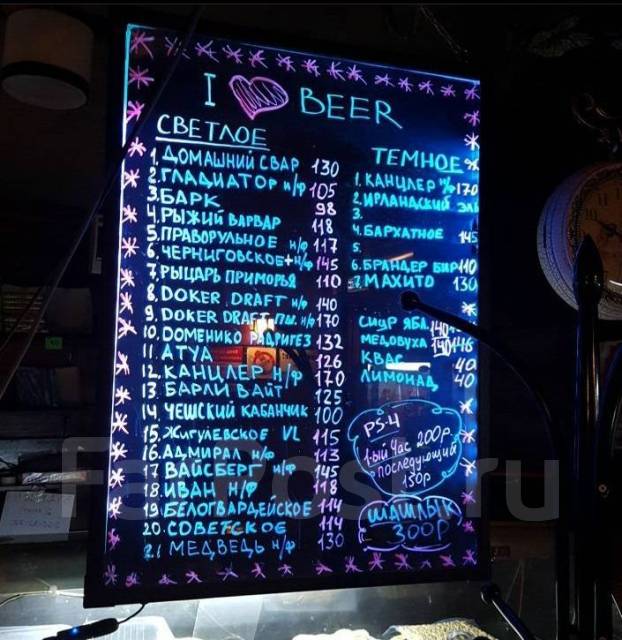 I BEER
СВЕТЛОЕ
1. ДОМАШНИЙ СВАР 130
2. ГЛАДИАТОР Н/Ф 105
3. БАРК 98
4. РЫЖИЙ ВАРВАР 118
5. ПРАВОРУЛЬНОЕ Н/Ф 117
6. ЧЕРНИГОВСКОЕ+Н/Ф 145
7. РЫЦАРЬ ПРИМОРЬЯ 110
8. DOKER DRAFT Н/Ф 140
9. DOKER DRAFT ПШ. Н/Ф 170
10. ДОМЕНИКО РАДРИГЕЗ 132
11. АТУА 126
12. КАНЦЛЕР Н/Ф 170
13. БАРЛИ ВАЙТ 125
14. ЧЕШСКИЙ КАБАНЧИК 100
15. ЖИГУЛЕВСКОЕ VL 115
16. АДМИРАЛ Н/Ф 113
17. ВАЙСБЕРГ Н/Ф 145
18. ИВАН Н/Ф 118
19. БЕЛОГВАРДЕЙСКОЕ 114
20. СОВЕТСКОЕ 114
21 МЕДВЕДЬ Н/Ф 130
ТЕМНОЕ
1. КАНЦЛЕР Н/Ф 170
2. ИРЛАНДСКИЙ ЭЛЬ
3.
4. БАРХАТНОЕ 145
5.
6. БРАНДЕР БИР 110
7. МАХИТО 130
СИДР ЯБЛ. 140
МЕДОВУХА 140
КВАС 40
ЛИМОНАД 40
PS-4
1-ЫЙ ЧАС 200р.
ПОСЛЕДУЮЩИЙ
150р
ШАШЛЫК
300Р
FarPost.ru